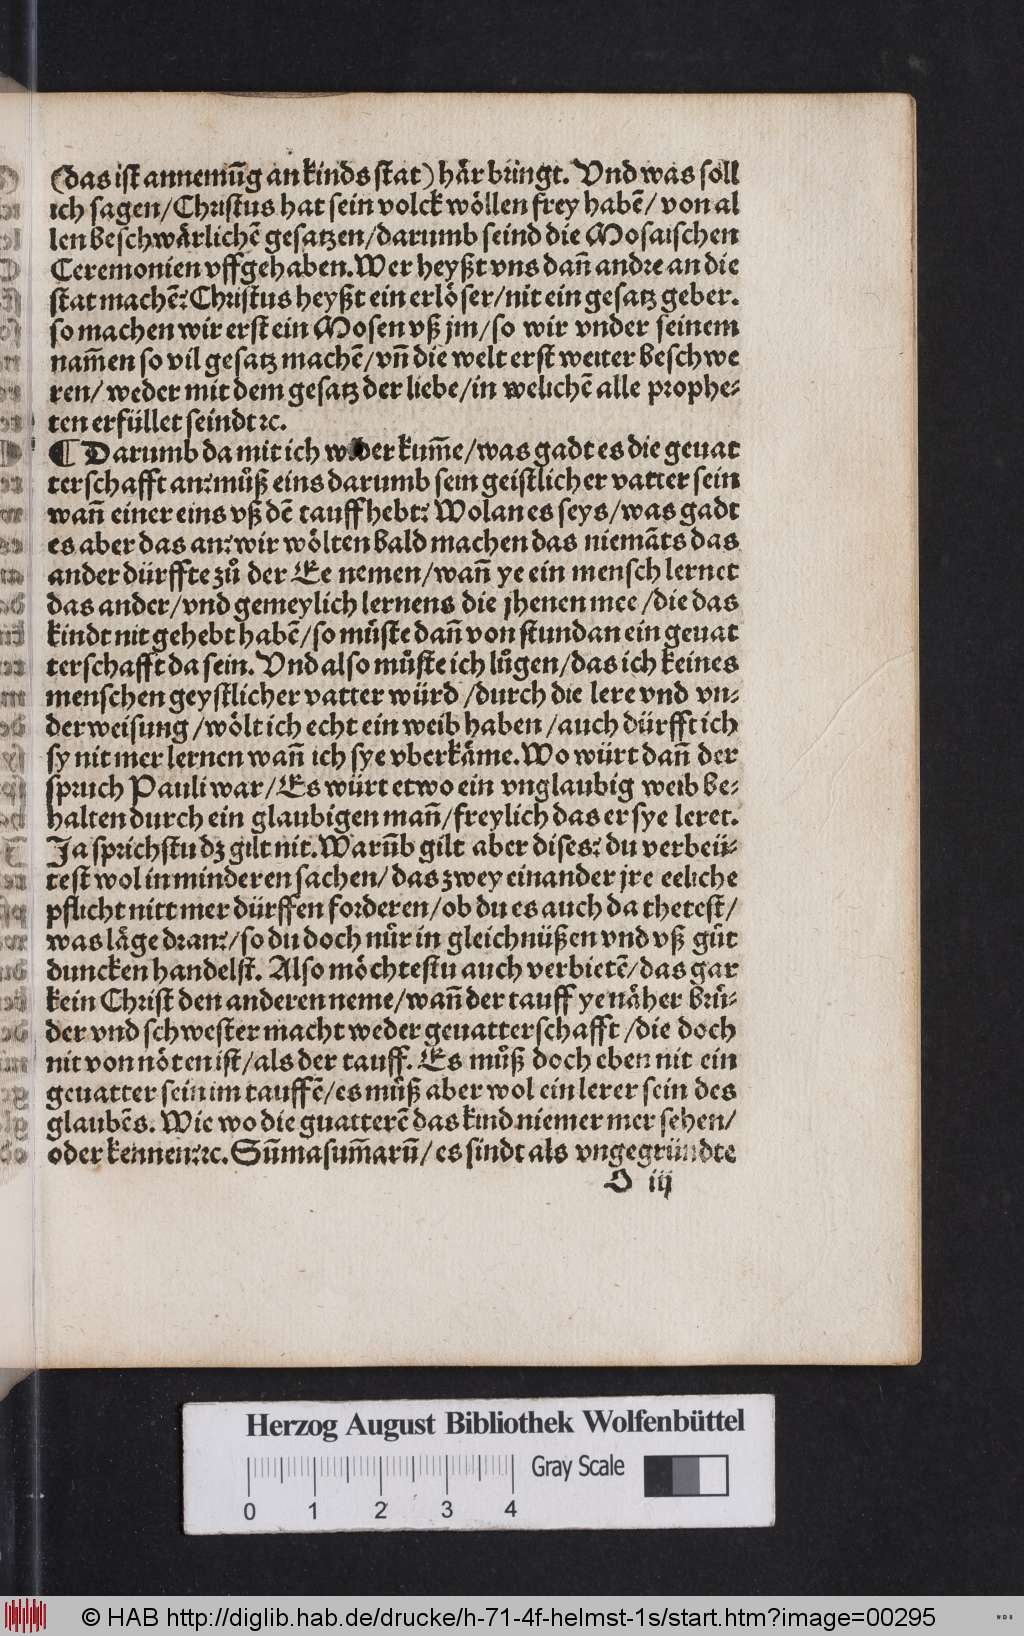 (das ist annemūg an kinds stat) här bringt. Vnd was soll
ich sagen/Christus hat sein volck wöllen frey habē/ von al
len beschwärlichē gesatzen/darumb seind die Mosaischen
Ceremonien vffgehaben. Wer heyßt vns dañ andre an die
stat machē? Christus heyßt ein erlöser/nit ein gesatz geber.
so machen wir erst ein Mosen vß jm/so wir vnder seinem
nam̄en so vil gesatz machē/vñ die welt erst weiter beschwe
ren/ weder mit dem gesatz der liebe/in welichē alle prophe⸗
ten erfüllet seindt ꝛc.
¶ Darumb da mit ich wider kum̄e/was gadt es die geuat
terschafft an? muͦß eins darumb sein geistlicher vatter sein
wañ einer eins vß dē tauff hebt? Wolan es seys/was gadt
es aber das an? wir wölten bald machen das niemāts das
ander dürffte zuͦ der Ee nemen/wañ ye ein mensch lernet
das ander/vnd gemeylich lernens die jhenen mee/die das
kindt nit gehebt habē/so müste dañ von stund an ein geuat
terschafft da sein. Vnd also müste ich luͦgen/das ich keines
menschen geystlicher vatter würd/durch die lere vnd vn⸗
derweisung/wölt ich echt ein weib haben/auch dürfft ich
sy nit mer lernen wañ ich sye vberkäme. Wo würt dañ der
spruch Pauli war/Es würt etwo ein vnglaubig weib be⸗
halten durch ein glaubigen mañ/freylich das er sye leret.
Ja sprichstu dz gilt nit. Warūb gilt aber dises? du verbeü⸗
test wol in minderen sachen/das zwey einander jre eeliche
pflicht nitt mer dürffen forderen/ob du es auch da thetest/
was läge dran?/so du doch nür in gleichnüßen vnd vß guͦt
duncken handelst. Also möchtestu auch verbietē/das gar
kein Christ den anderen neme/wañ der tauff ye näher brü⸗
der vnd schwester macht weder geuatterschafft/die doch
nit von nöten ist/als der tauff. Es muͦß doch eben nit ein
geuatter sein im tauffē/es muͦß aber wol ein lerer sein des
glaubēs. Wie wo die guatterē das kind niemer mer sehen/
oder kennen? ꝛc. Sūma sum̄arū/es sindt als vngegründte
O iij
Herzog August Bibliothek Wolfenbüttel
Gray Scale
0 1 2 3 4
© HAB http://diglib.hab.de/drucke/h-71-4f-helmst-1s/start.htm?image=00295